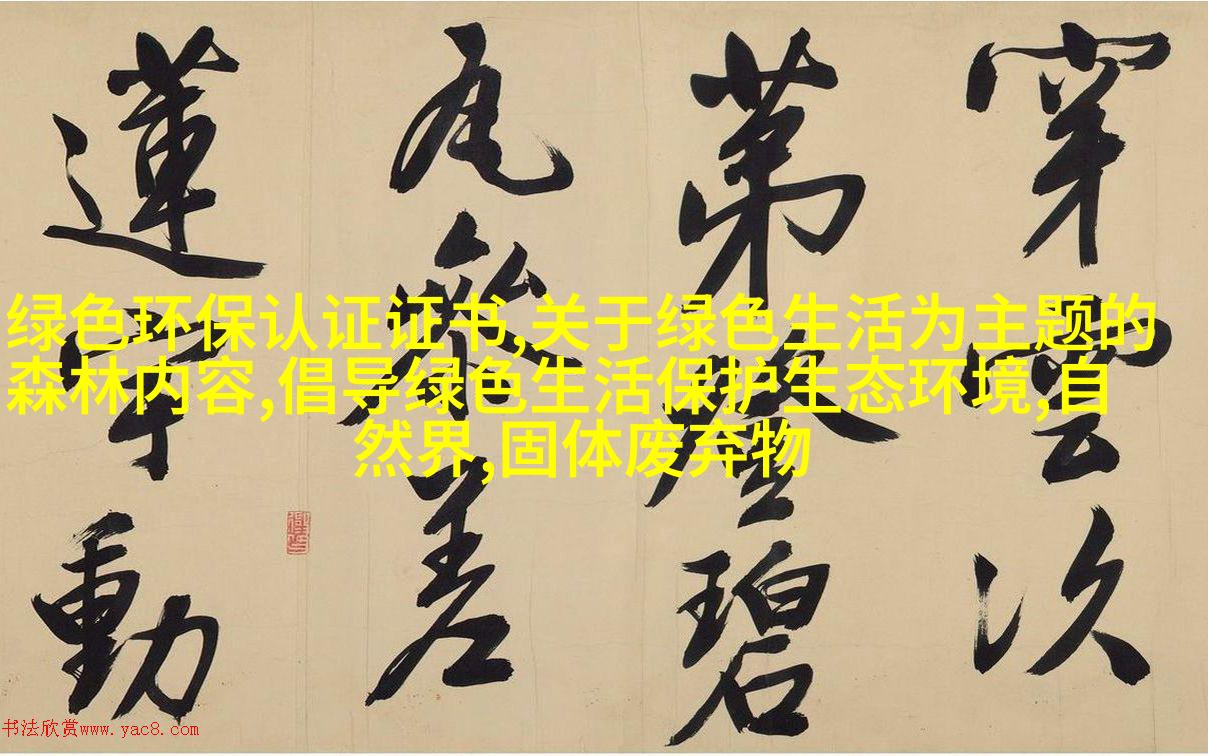 穿雲次
第碧
瓦參差
蓮宇動
绿色环保认证证书,关于绿色生活为主题的
森林内容,倡导绿色生活保护生态环境,自
然界,固体废弃物
书法欣赏www.yac8.com